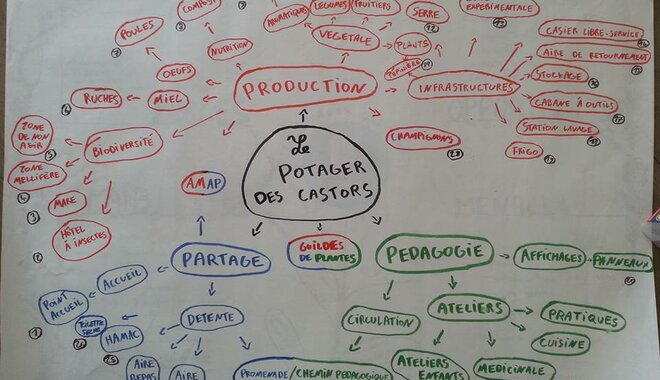 COMPOST
POULES
AROMATIQUES
LEGUMES
FRUITIERS
SERRE
EXPERIMENTALE
VEGETALE
NUTRITION
PLANTS
PEPINIÈRE
CASIER LIBRE-SERVICE
AIRE DE RETOURNEMENT
OEUFS
PRODUCTION
INFRASTRUCTURES
STOCKAGE
RUCHES
MIEL
CABANE À OUTILS
ZONE
DE NON
AGIR
BIODIVERSITÉ
Le
POTAGER
DES CASTORS
CHAMPIGNONS
STATION LAVAGE
FRIGO
ZONE
MELLIFÈRE
MARE
AMAP
HÔTEL
À INSECTES
PARTAGE
GUILDES
DE PLANTES
PEDAGOGIE
AFFICHAGES
PANNEAUX
POINT
ACCUEIL
ACCUEIL
DETENTE
CIRCULATION
ATELIERS
PRATIQUES
HAMAC
CUISINE
AIRE
REPAS
AIRE
PROMENADE/CHEMIN PEDAGOGIQUE
ATELIERS
ENFANTS
MEDICINALE